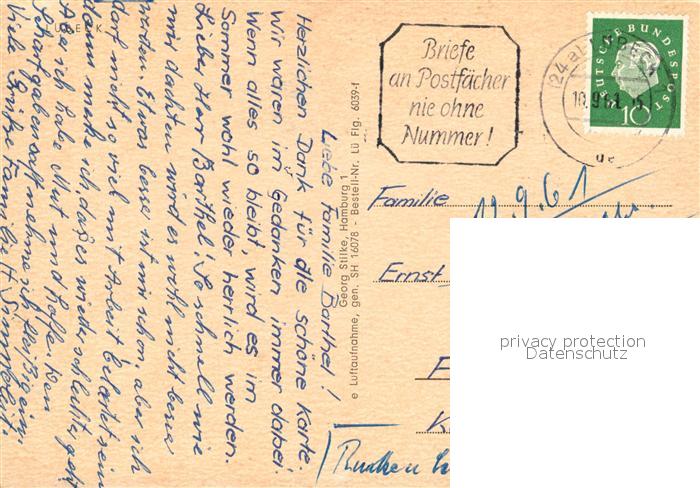 LÜBECK
Liebe Familie Barthel!
Herzlichen Dank für die schöne Karte.
Wir waren im Gedanken immer dabei.
Wenn alles so bleibt, wird es im
Sommer wohl wieder herrlich werden.
Liebe Herr Barthel! So schnell wie
wir dachten wird es wohl nicht besser
werden. Etwas besser ist mir schon, aber ich
darf nicht so viel mit Arbeit belastet sein
dann merke ich, daß es wieder schlechter geht.
Aber ich habe Mut und hoffe. Den
nehme ich fleißig ein.
Viele Grüße Familie H.
e Luftaufnahme, gen. SH 16078 - Bestell-Nr. Lü Flg. 6039-f
Georg Stilke, Hamburg 1
Briefe
an Postfächer
nie ohne
Nummer!
(24
10.9.61
DEUTSCHE BUNDESPOST
10
Familie
12.9.61
Ernst
privacy protection
Datenschutz